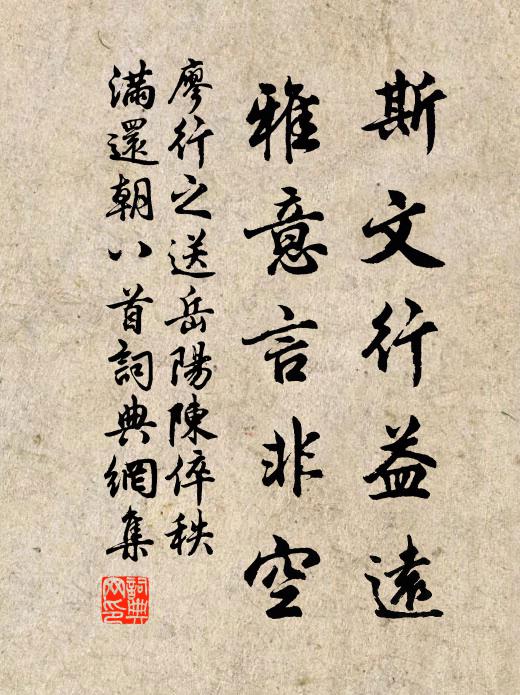 斯文行益遠
雅意言非空
廖行之送岳陽陳倅秩
滿還朝八首詞典網集
詞典网印